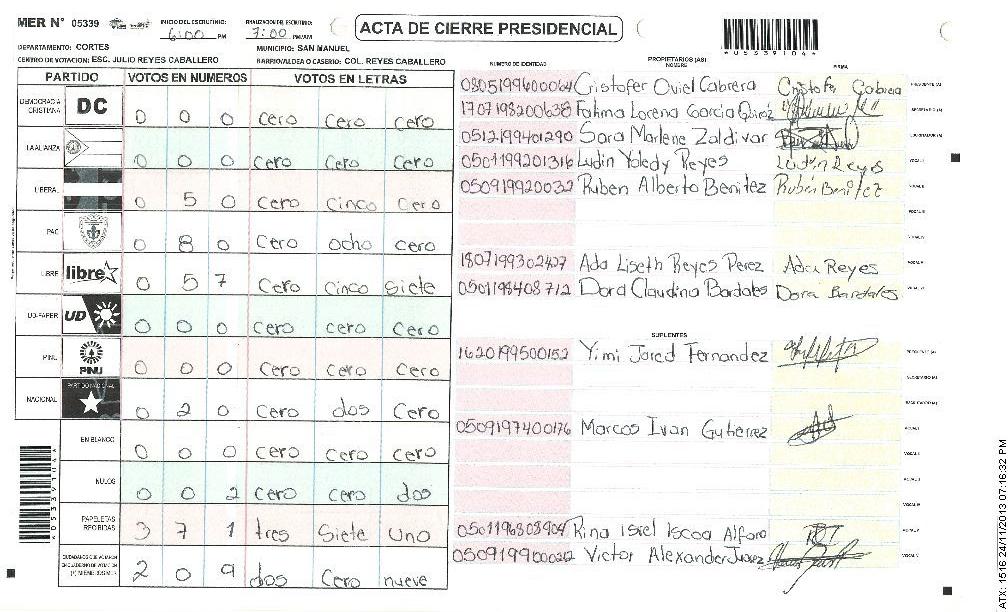 MER N° 05339
INICIO DEL ESCRUTINIO: 6:00 PM
FINALIZACION DEL ESCRUTINIO: 7:00 PM/AM
ACTA DE CIERRE PRESIDENCIAL
*05339104*
DEPARTAMENTO: CORTES
MUNICIPIO: SAN MANUEL
CENTRO DE VOTACION: ESC. JULIO REYES CABALLERO
BARRIO/ALDEA O CASERIO: COL. REYES CABALLERO
PARTIDO VOTOS EN NUMEROS VOTOS EN LETRAS
DEMOCRACIA CRISTIANA DC 0 0 0 cero cero cero
LA ALIANZA 0 0 0 cero cero cero
LIBERAL 0 5 0 cero cinco cero
PAC 0 8 0 cero ocho cero
LIBRE libre 0 5 7 cero cinco siete
UD-FAPER UD 0 0 0 cero cero cero
PINU PINU 0 0 0 cero cero cero
NACIONAL PARTIDO NACIONAL 0 2 0 cero dos cero
EN BLANCO 0 0 0 cero cero cero
NULOS 0 0 2 cero cero dos
PAPELETAS RECIBIDAS 3 7 1 tres siete uno
2 0 9 dos cero nueve
*05339104*
PROPIETARIOS (AS)
NUMERO DE IDENTIDAD NOMBRE FIRMA
0805199600064 Cristofer Oviel Cabrera Cristofer Cabrera PRESIDENTE (A)
1707198200638 Fatima Lorena Garcia SECRETARIO (A)
0512199401290 Sara Marlene Zaldivar ESCRUTADOR (A)
0501199201316 Ludin Yoledy Reyes Ludin Reyes VOCAL I
050919920032 Ruben Alberto Benitez Ruben Benitez VOCAL II
VOCAL III
VOCAL IV
1807199302427 Ada Liseth Reyes Perez Ada Reyes VOCAL V
0501198408712 Dora Claudina Bardales Dora Bardales
SUPLENTES
1620199500152 Yimi Jared Fernandez PRESIDENTE (A)
SECRETARIO (A)
ESCRUTADOR (A)
0509197400176 Marcos Ivan Gutierrez VOCAL I
VOCAL II
0501196808904 Rina Isiel Iscoa Alfaro
Victor Alexander Juarez
ATX: 1516 24/11/2013 07:16:32 PM